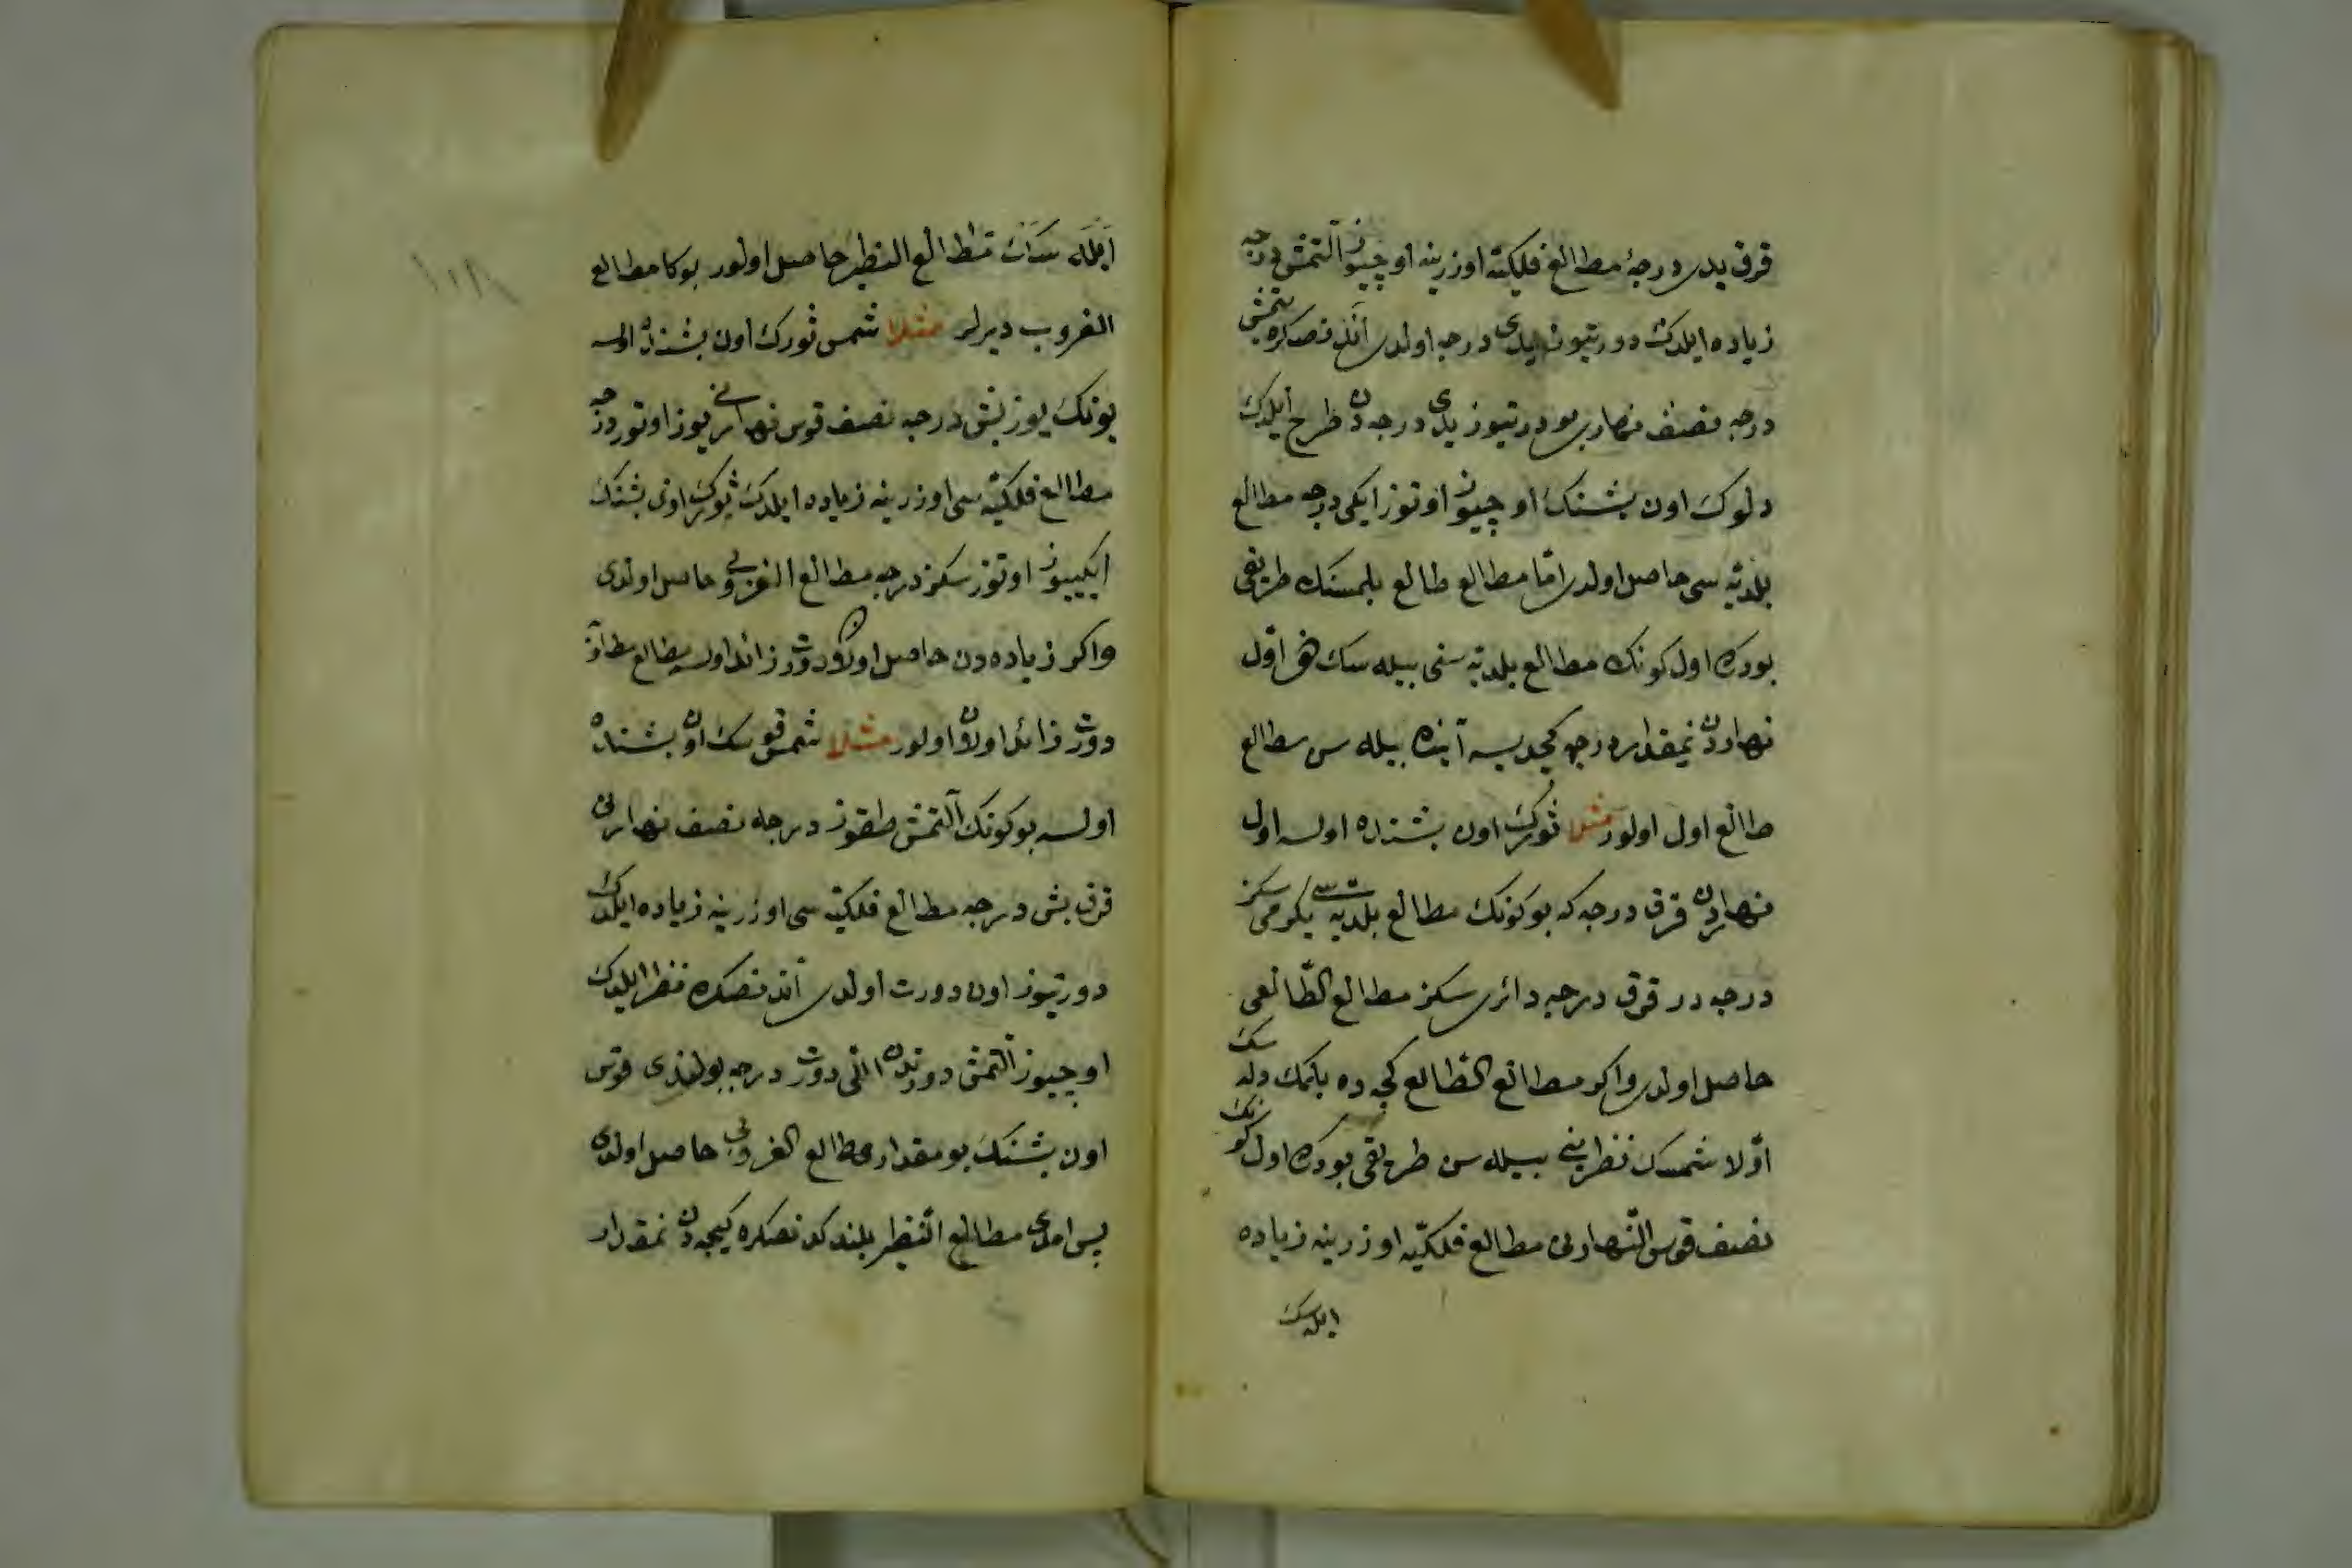 قرق يدى درجۀ مطالع فلكيّه اوزرينه اوچيوز التمش درجه
زياده ايلدك دورتيوز يدى درجه اولدى آندنصكره يتمش
درجه نصف نهارى بو دورتيوز يدى درجه دن طرح ايلدك
دلوك اون بشنك اوچيوز اوتوز ايكى درجه مطالع
بلديّه سى حاصل اولدى امّا مطالع طالع بلمسنك طريقى
بودركه اول كونك مطالع بلديّه سنى بيله سك هر اوّل
نهاردن نمقدار درجه كچديسه آينده بيله سن مطالع
طالع اول اولور مثلا ثورك اون بشنده اولسه اول
نهاردن قرق درجه كه بوكونك مطالع بلديه سى يكرمى سكز
درجه در قرق درجه دائرى سكز مطالع الطّالعى
حاصل اولدى واكر مطالع الطّالع كجه ده بلمك دلر سك
اوّلا شمسك نظرينى بيله سن طريقى بودركه اول كونك
نصف قوس النّهارنى مطالع فلكيّه اوزرينه زياده
ايله سك
ايله سك مطالع النظير حاصل اولور بوكا مطالع
الغروب ديرلر مثلا شمس ثورك اون بشنده اولسه
بونك يوز بش درجه نصف قوس نهارنى يوز اوتوز درجه
مطالع فلكيّه سى اوزرينه زياده ايلدك ثورك اون بشنك
ايكييوز اوتوز سكز درجه مطالع الغروبى حاصل اولدى
واكر زياده دن حاصل اولان دوردن زائد اولسه مطالع
دوردن زائد اولان اولور مثلا شمس قوسك اون بشنده
اولسه بوكونك آلتمش طقوز درجه نصف نهارنى
قرق بش درجه مطالع فلكيّه سى اوزرينه زياده ايلدك
دورتيوز اون دورت اولدى آندنصكره نظر ايلدك
اوچيوز التمش دوردن اللى دورت درجه بولندى قوس
اون بشنك بو مقدار مطالع الغروبى حاصل اولدى
پس امدى مطالع النّظير بلندكدنصكره كيجه دن نمقدار